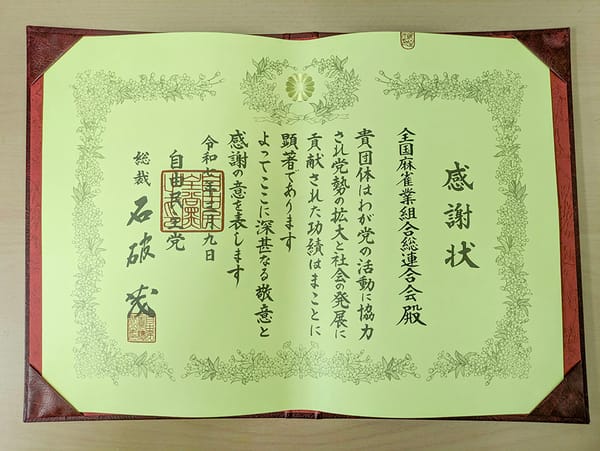 感謝状
全国麻雀業組合総連合会殿
貴団体はわが党の活動に協力
され党勢の拡大と社会の発展に
貢献された功績はまことに
顕著であります
よってここに深甚なる敬意と
感謝の意を表します
令和七年三月九日
自由民主党
総裁 石破茂